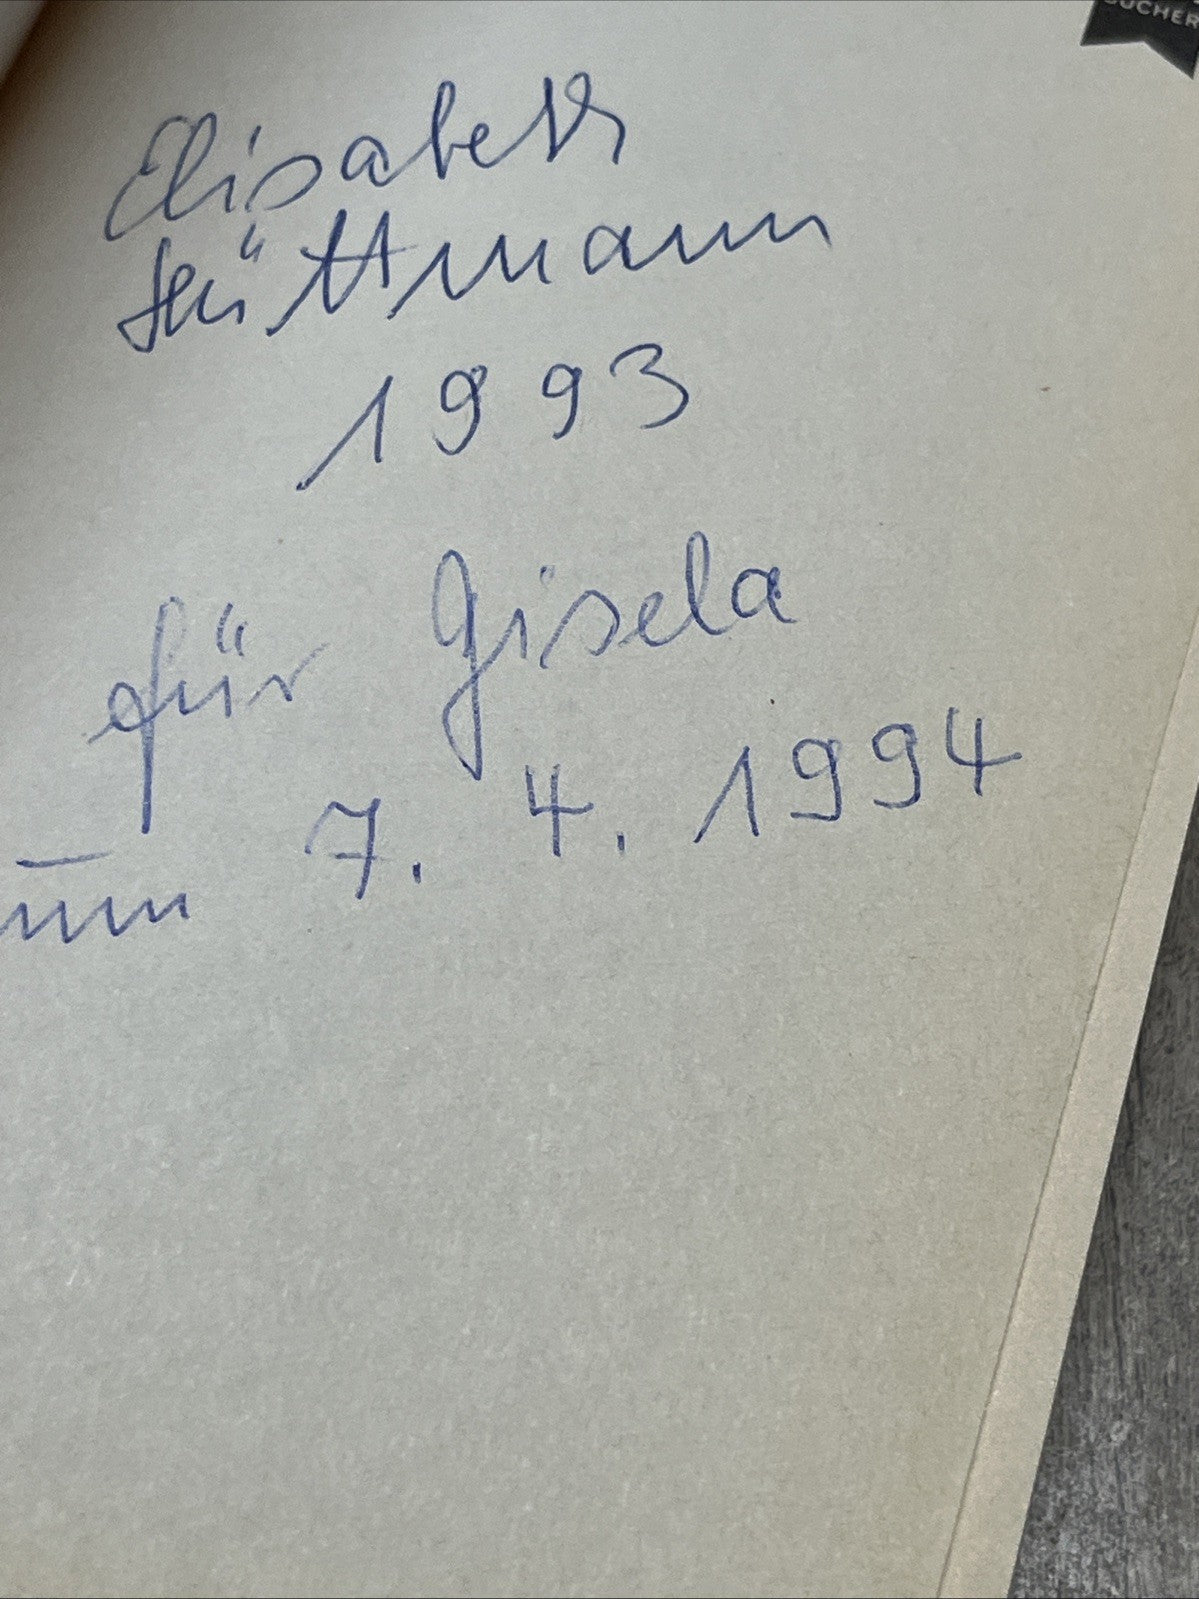 BÜCHER
Elisabeth
Hüttmann
1993
für Gisela
zum 7. 4. 1994